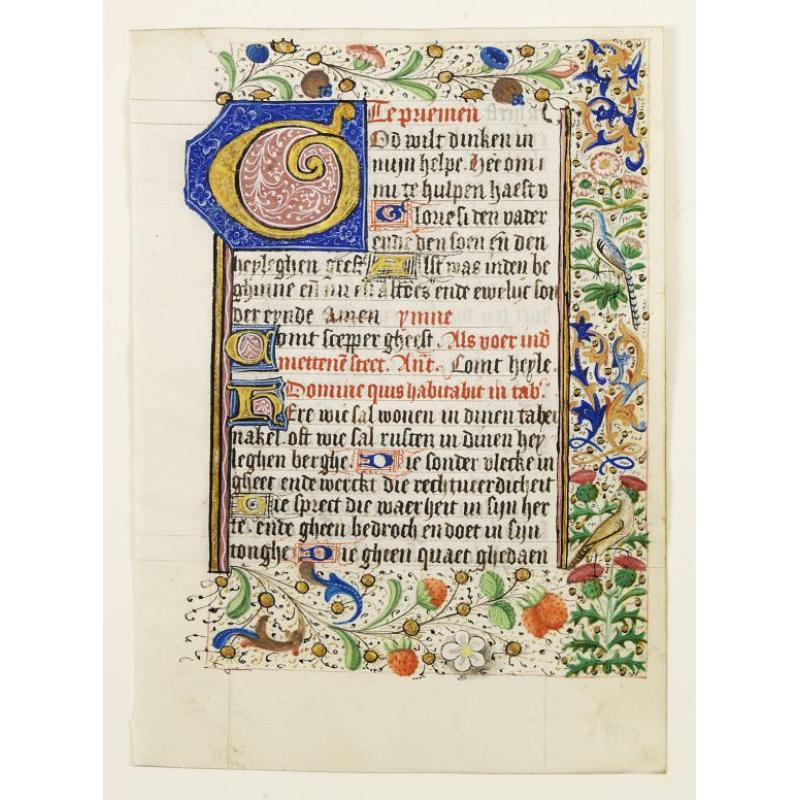 Te priemen
God wilt dinken in
mijn helpe. Here om
mi te hulpen haest v
Glorie si den vader
ende den soen eñ den
heyleghen geest Alst was inden be
ghinne eñ nu eñ altoes ende ewelijc son
der eynde Amen ymne
Comt scepper gheest. Als voer ind
mettenē stect. Añt. Comt heyle.
Domine quis habitabit in tab.
Here wie sal wonen in dinen taber
nakel. oft wie sal rusten in dinen hey
leghen berghe. Die sonder vlecke in
gheet ende werckt die rechtueerdicheit
Die sprect die waerheit in sijn her
te. ende gheen bedroch en doet in sijn
tonghe Die gheen quaet ghedaen